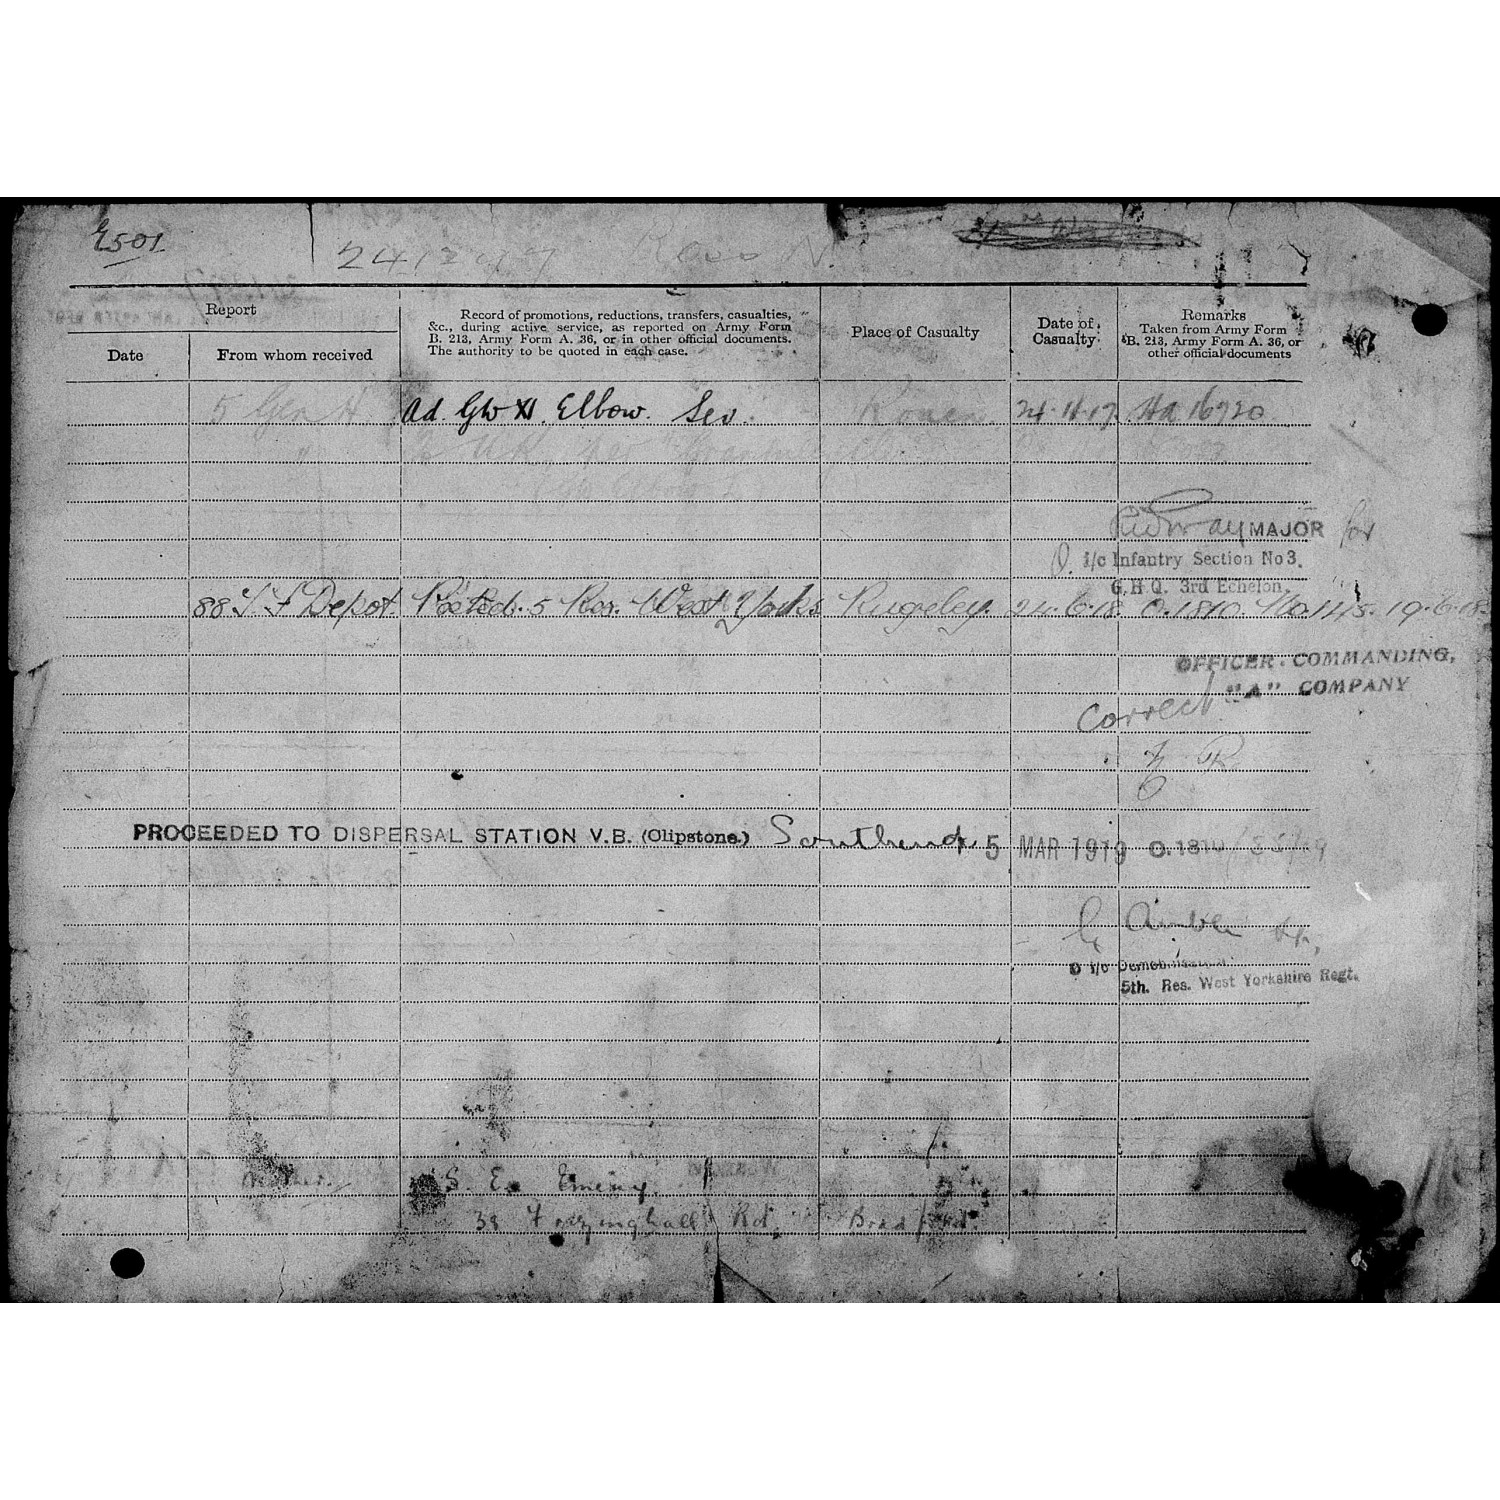 E501
Ross
Report
Date
From whom received
Record of promotions, reductions, transfers, casualties,
&c., during active service, as reported on Army Form
B. 213, Army Form A. 36, or in other official documents.
The authority to be quoted in each case.
Place of Casualty
Date of
Casualty
Remarks
Taken from Army Form
B. 213, Army Form A. 36, or
other official documents
5 Gen H ad. GW XI. Elbow. Sev. Rouen. 24.11.17. HA 16720
to UK per
MAJOR for
i/c Infantry Section No 3.
G.H.Q. 3rd Echelon.
88 T. F Depot. Posted. 5 Res. West Yorks Rugeley. 24.6.18. O.1810. No.145. 19.6.18.
OFFICER COMMANDING,
"A" COMPANY
Correct
PROCEEDED TO DISPERSAL STATION V.B. (Clipstone.) 5 MAR 1919 O.1810
O i/c Demobilisation
5th. Res. West Yorkshire Regt.
Mother. S. E. Emeny.
38 Frizinghall Rd. Bradford.